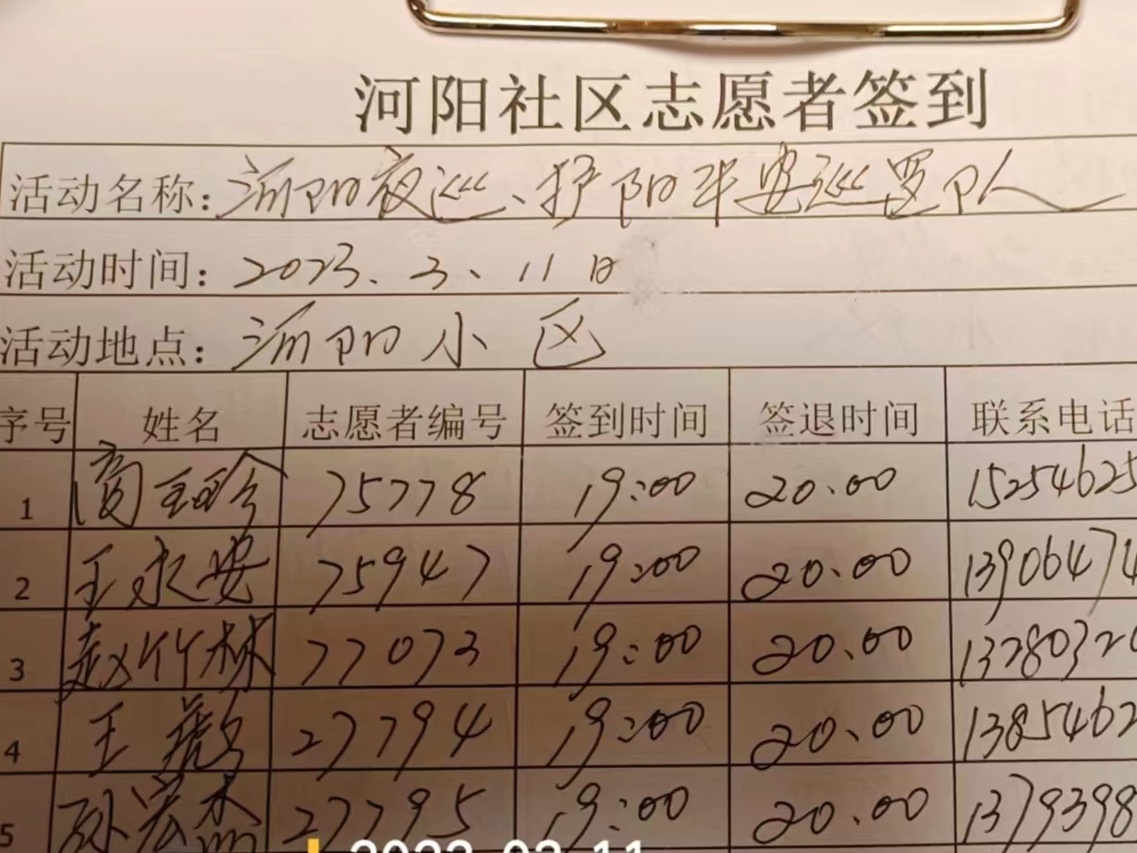 河阳社区志愿者签到
活动名称:河阳夜巡、护阳平安巡逻队
活动时间:2023.3.11日
活动地点:河阳小区
序号 姓名 志愿者编号 签到时间 签退时间 联系电话
1 商玉珍 75778 19:00 20.00 15254625
2 王永安 75947 19:00 20.00 13906474
3 赵竹林 77073 19:00 20.00 1328032
4 王 27794 19:00 20.00 1385462
5 孙宏杰 27795 19:00 20.00 1379398
2023-03-11